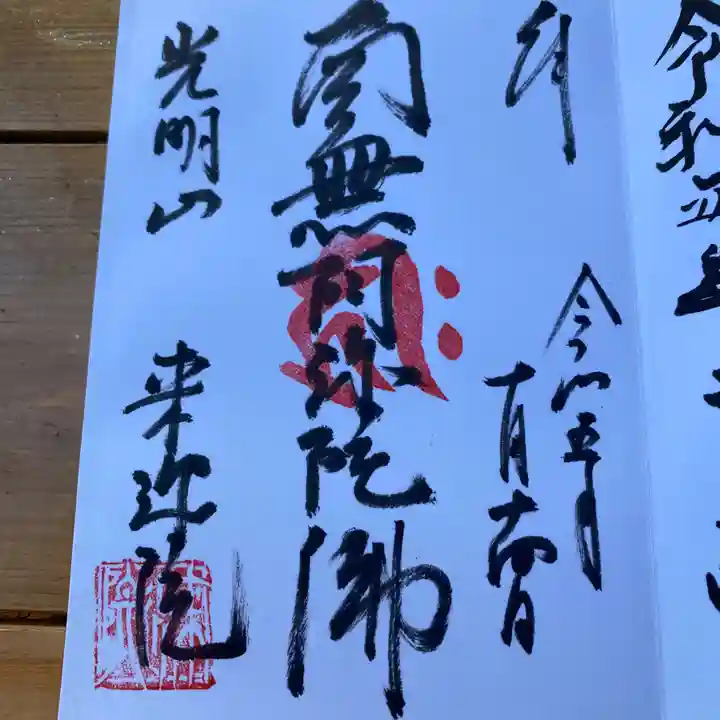 令和五年
拝
令和五年
十月
南無阿弥陀佛
光明山 来迎院